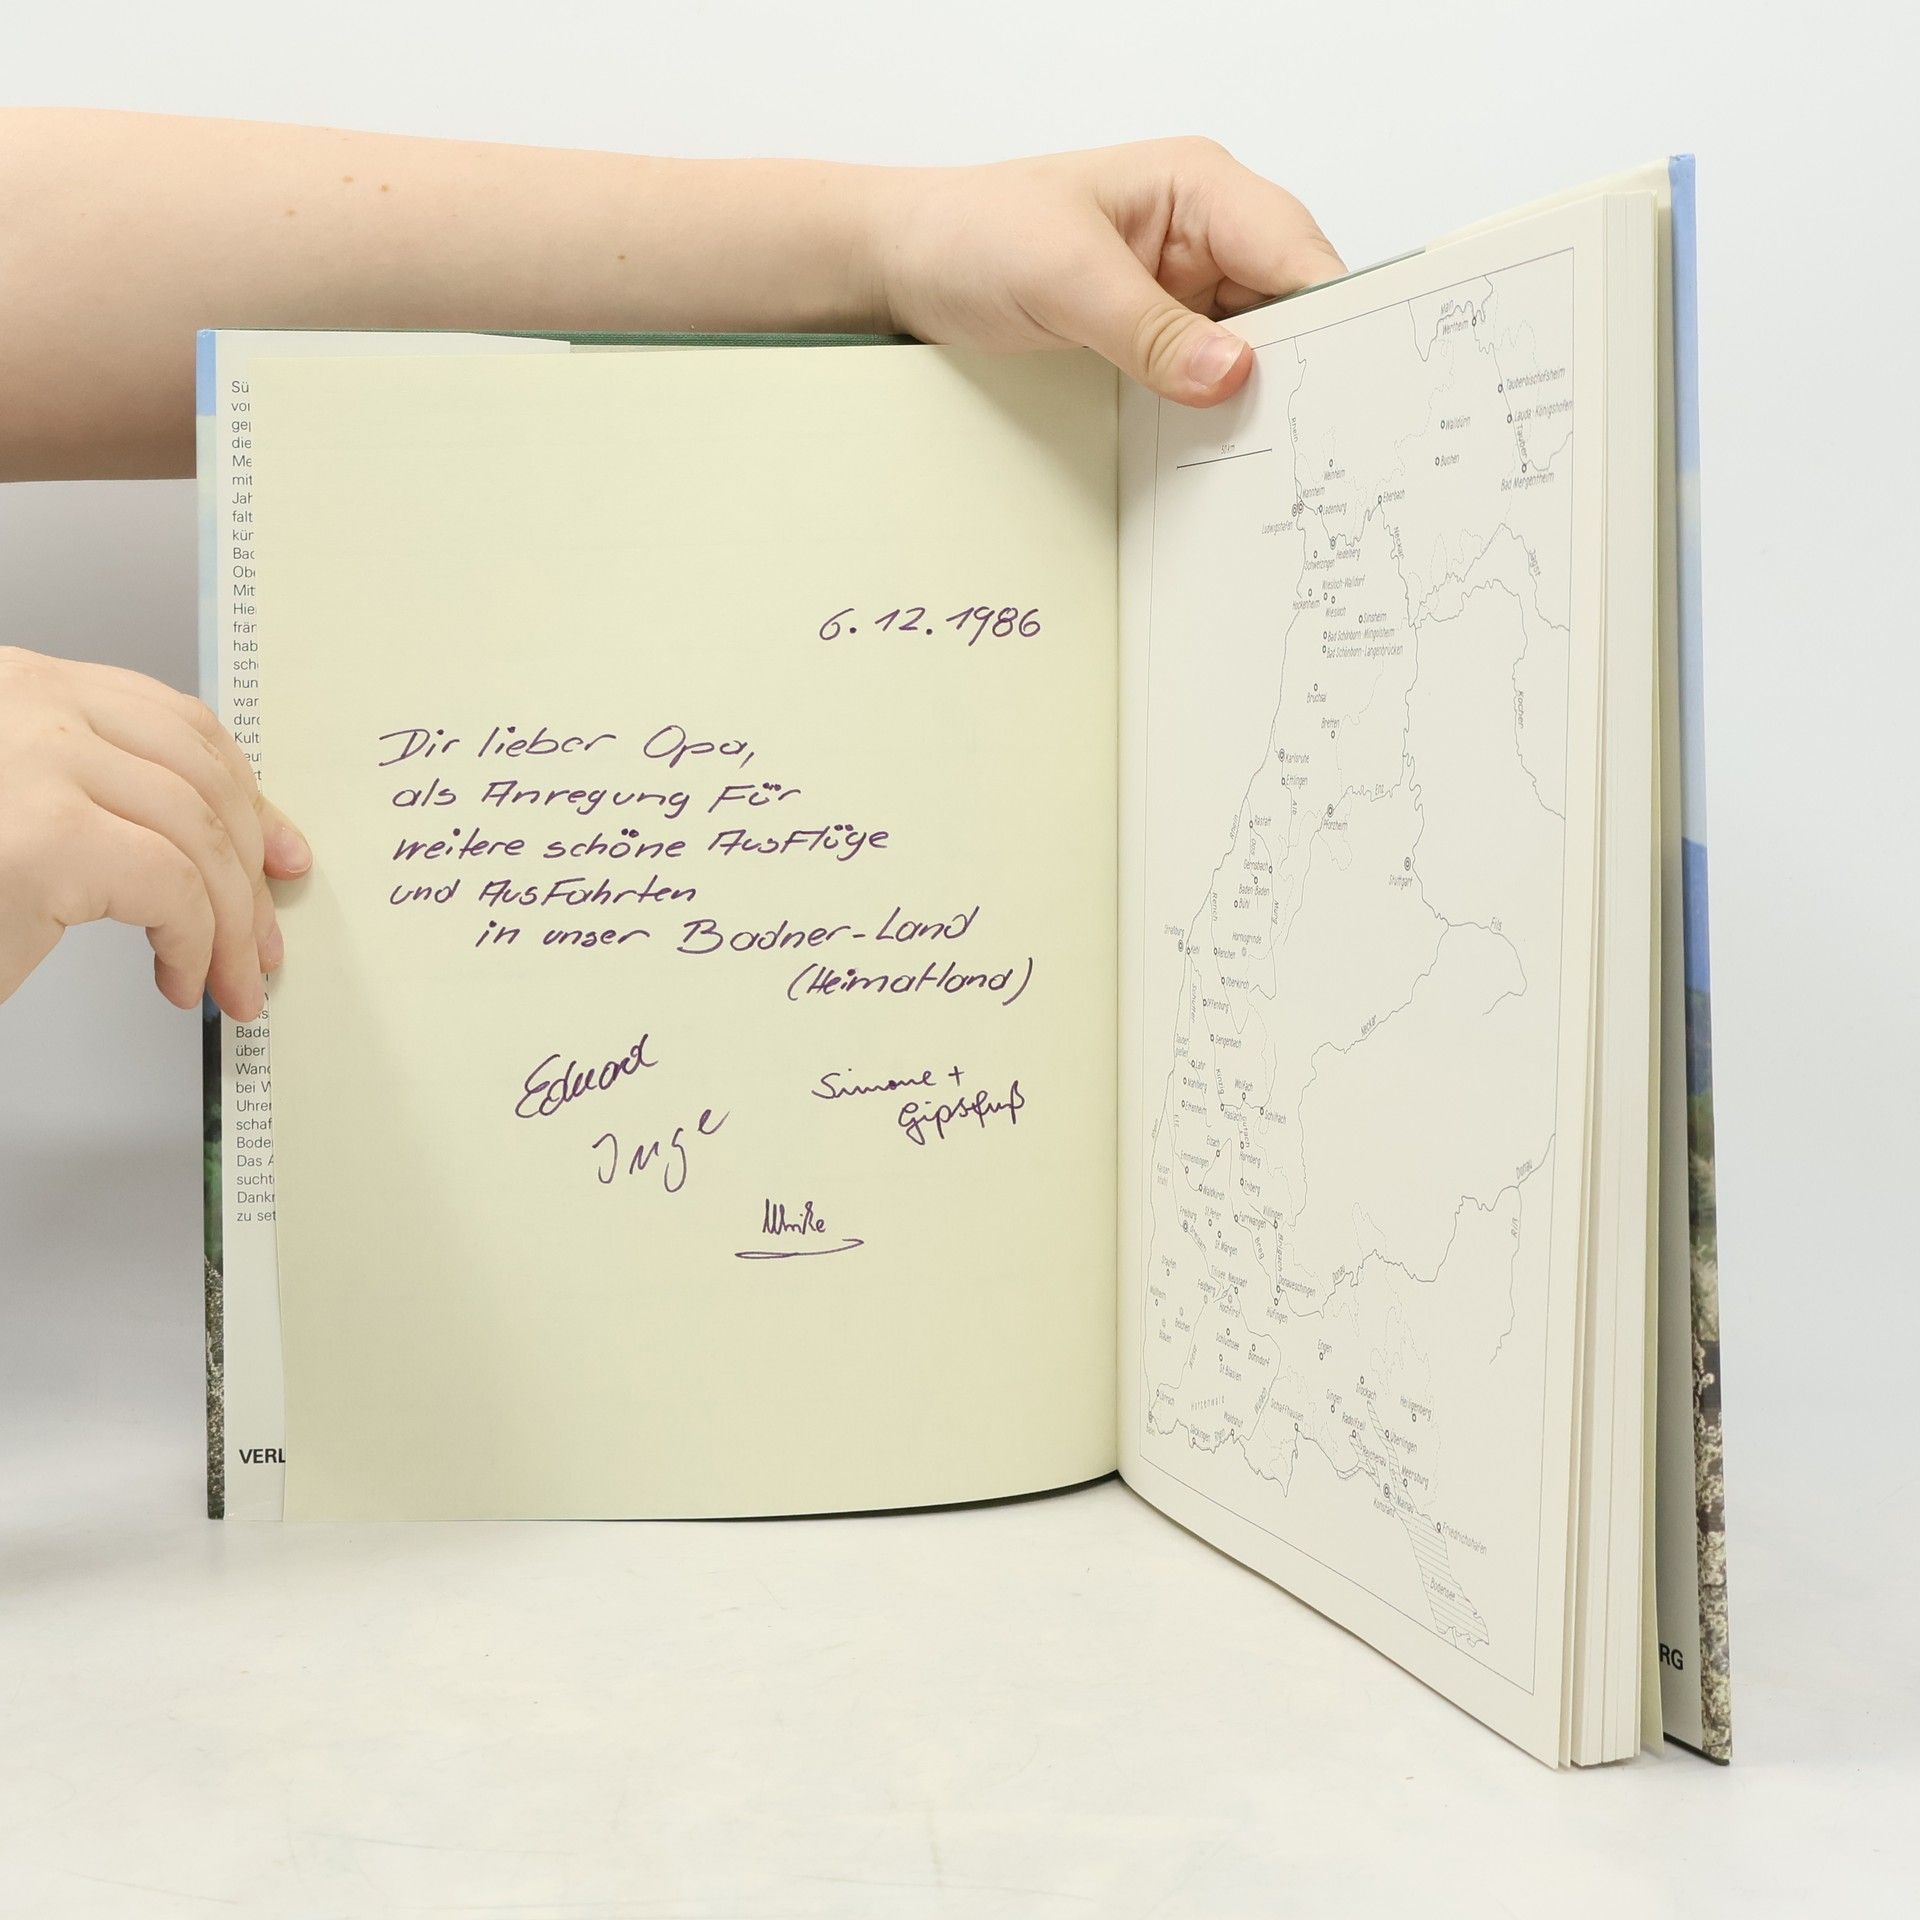 Sü
vor
die
Me
mit
Jah
falt
kün
Bad
Obe
Mit
Hie
frän
hab
sch
hun
war
durc
Kult
Bade
über
Wand
bei W
Uhren
schaf
Bode
Das A
sucht
Dankr
zu set
VERL
6.12.1986
Dir lieber Opa,
als Anregung für
weitere schöne Ausflüge
und Ausfahrten
in unser Badner-Land
(Heimatland)
Eduard
Simone +
Gipsfuß
Inge
Ulrike
Main
Wertheim
Tauberbischofsheim
Lauda-Königshofen
Walldürn
Tauber
Buchen
Bad Mergentheim
Rhein
50 km
Weinheim
Mannheim
Ludwigshafen
Ladenburg
Eberbach
Neckar
Heidelberg
Schwetzingen
Jagst
Wiesloch-Walldorf
Hockenheim
Wiesloch
Sinsheim
Bad Schönborn-Mingolsheim
Bad Schönborn-Langenbrücken
Bruchsal
Kocher
Bretten
Karlsruhe
Ettlingen
Enz
Alb
Pforzheim
Rhein
Rastatt
Gernsbach
Stuttgart
Baden-Baden
Bühl
Rench
Murg
Fils
Straßburg
Kehl
Hornisgrinde
Renchen
Oberkirch
Schutter
Offenburg
Neckar
Gengenbach
Lahr
Kinzig
Mahlberg
Wolfach
Ettenheim
Haslach
Schiltach
Gutach
Elz
Elzach
Emmendingen
Hornberg
Donau
Triberg
Waldkirch
Freiburg
St. Peter
Furtwangen
Villingen
St. Märgen
Breg
Brigach
Iller
Staufen
Titisee
Neustadt
Donaueschingen
Donau
Feldberg
Hochfirst
Hüfingen
Müllheim
Belchen
Blauen
Schluchsee
Bonndorf
Engen
St. Blasien
Wiese
Lörrach
Hotzenwald
Waldshut
Säckingen
Schaffhausen
Singen
Stockach
Radolfzell
Heiligenberg
Überlingen
Reichenau
Meersburg
Mainau
Konstanz
Friedrichshafen
Bodensee
RG